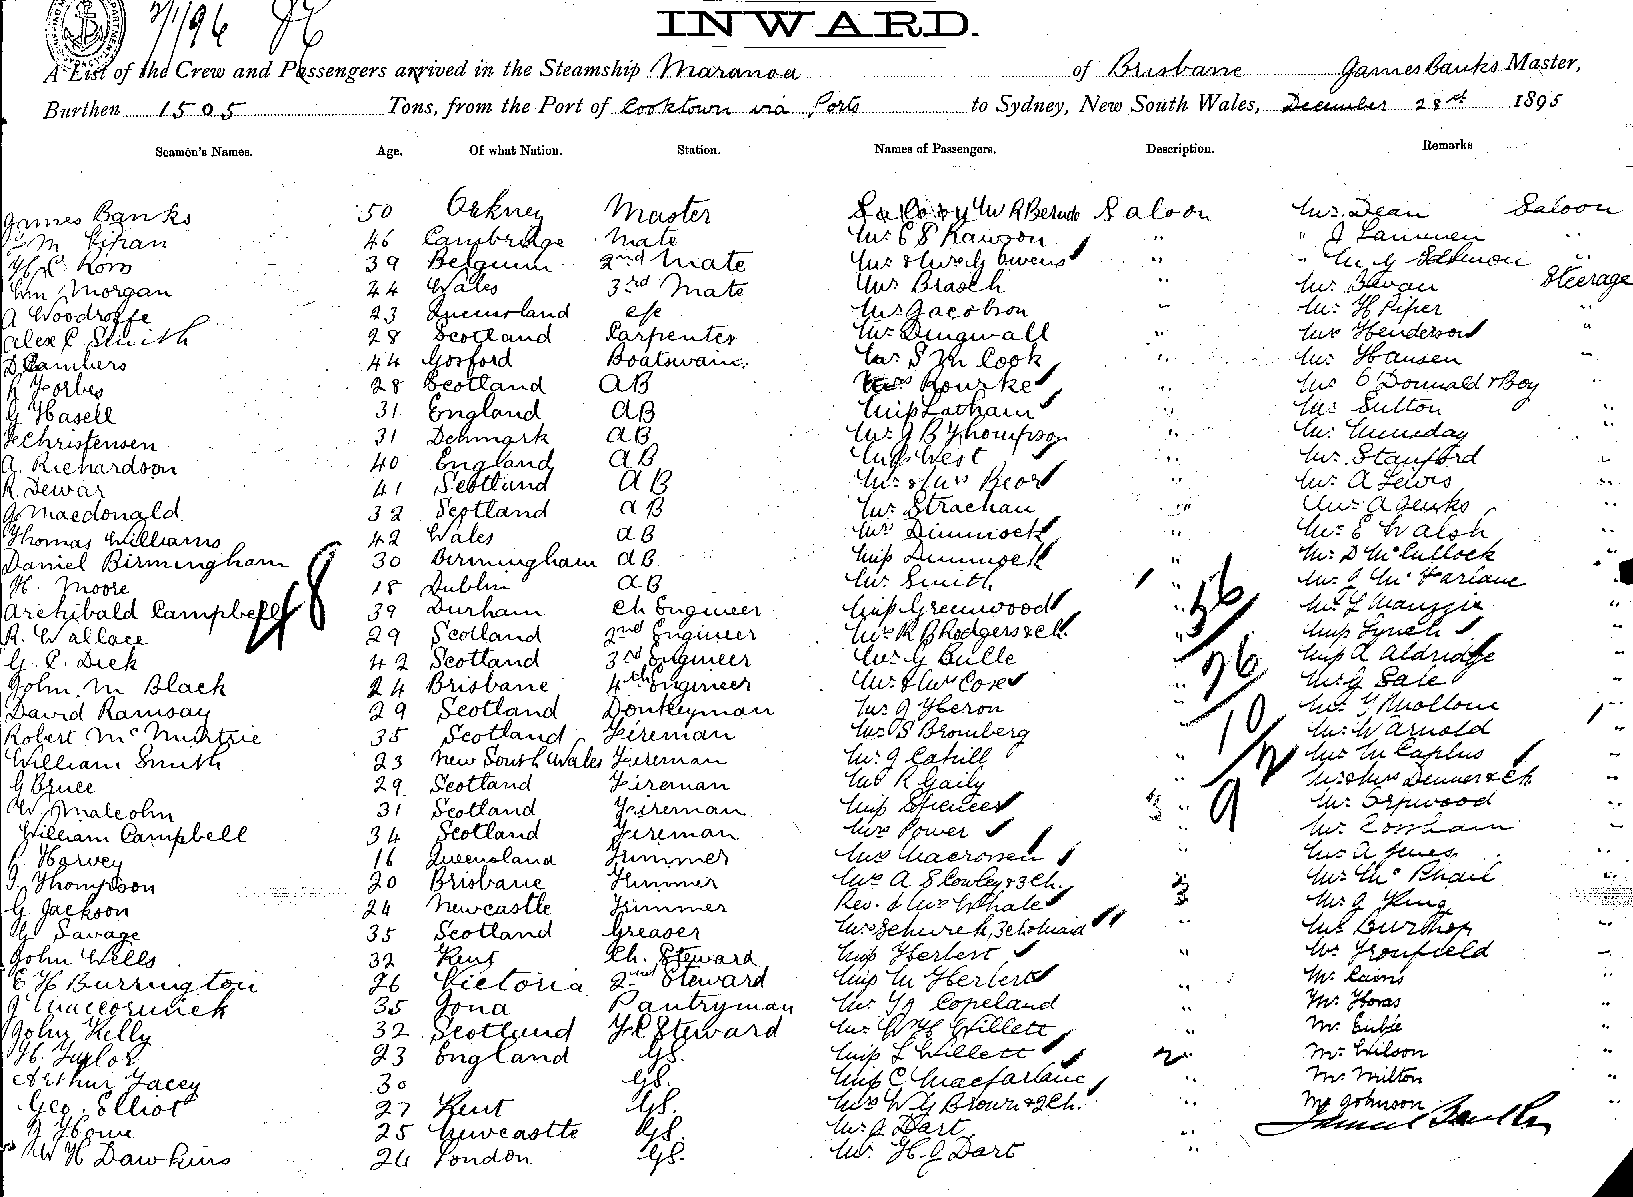 2/1/96
INWARD.
A List of the Crew and Passengers arrived in the Steamship Maranoa of Brisbane James Banks Master,
Burthen 1505 Tons, from the Port of Cooktown via Ports to Sydney, New South Wales, December 28th 1895
Seamen's Names. Age. Of what Nation. Station. Names of Passengers. Description. Remarks
James Banks 50 Orkney Master Saloon Mr Dean Saloon
46 Cambridge Mate Mr E S Rawson " " J "
39 Belgium 2nd Mate Mr & Mrs G Owens " " "
Wm Morgan 44 Wales 3rd Mate Mr Brasch " Mr Bevan Steerage
A Woodroffe 23 Queensland Mr Jacobson " Mr H Piper "
Alex C Smith 28 Scotland Carpenter Mr Dingwall " Mrs Henderson "
D Lambers 44 Gosford Boatswain Mr S M Cook " Mr Hansen "
R Forbes 28 Scotland AB Rourke " Mr O'Donnald & Boy
G Hasell 31 England AB Miss Latham " Mr Sutton "
Christensen 31 Denmark AB Mr J B Thompson " Mr Munsday "
A. Richardson 40 England AB West " Mr Stanford "
R Dewar 41 Scotland AB Mr & Mrs " Mr A Lewis "
J Macdonald 32 Scotland AB Mr Strachan " Mr A Jenks "
Thomas Williams 42 Wales AB Mrs Dimmock " Mr E Walsh "
Daniel Birmingham 30 Birmingham AB Miss Dimmock " Mr D McCullock "
H. Moore 18 Dublin AB Mr Smith " Mr J McFarlane "
Archibald Campbell 48 39 Durham Ch Engineer Miss Greenwood " 56 "
R. Wallace 29 Scotland 2nd Engineer Mrs R B Rodgers & Ch. " Miss Lynch "
G. C. Dick 42 Scotland 3rd Engineer Mr G Bulle " 26 Miss A Aldridge "
John M Black 24 Brisbane 4th Engineer Mr & Mrs Cox " Mr G Sale "
David Ramsay 29 Scotland Donkeyman Mr J Heron " 10 "
Robert McMurtrie 35 Scotland Fireman Mr S Bromberg " Mr W Arnold "
William Smith 23 New South Wales Fireman Mr J Cahill " 2 Mr M Caplus "
G Bruce 29 Scotland Fireman Mr R Gaily " 9 Mr & Mrs Denner & Ch "
W Malcolm 31 Scotland Fireman Miss Spencer " Mr "
William Campbell 34 Scotland Fireman Mrs Power " Mr "
R Harvey 16 Queensland Trimmer Mrs Macrossen " Mr A Jones "
J Thompson 20 Brisbane Trimmer Mrs A S Cowley & 3 Ch. " Mr McPhail "
G Jackson 24 Newcastle Trimmer Rev. & Mrs Whale " Mr J King "
G Savage 35 Scotland Greaser " "
John Wells 32 Kent Ch. Steward Miss Herbert " "
E H Burrington 26 Victoria 2nd Steward Miss M Herbert " Mr Cairns "
J Maccormick 35 Iona Pantryman Mr Copeland " Mr Horas "
John Kelly 32 Scotland F.C Steward Mr W H Willett " Mr "
H. Taylor 23 England GS. Miss L Willett 2 " Mr Wilson "
Arthur Facey 30 GS. Miss C Macfarlane " Mr Milton "
Geo. Elliot 27 Kent GS. Mrs W G Brown & 2 Ch. " Mr Johnson "
J Howe 25 Newcastle GS. Mr J Dart "
W H Dawkins 24 London GS. Mr H. J Dart "